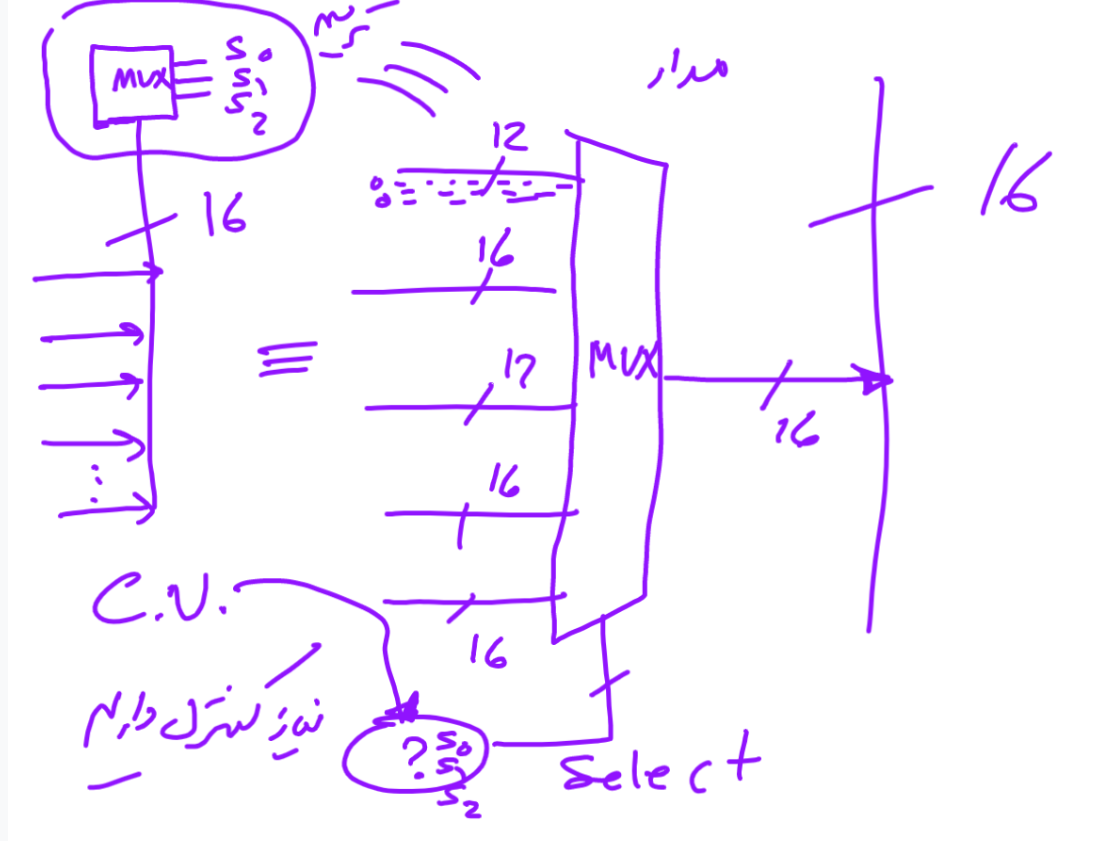 MUX
S0
S1
S2
مدار
12
0
0
16
16
16
12
MUX
16
16
16
C.U.
کنترل داریم
? S0
S1
S2
Select